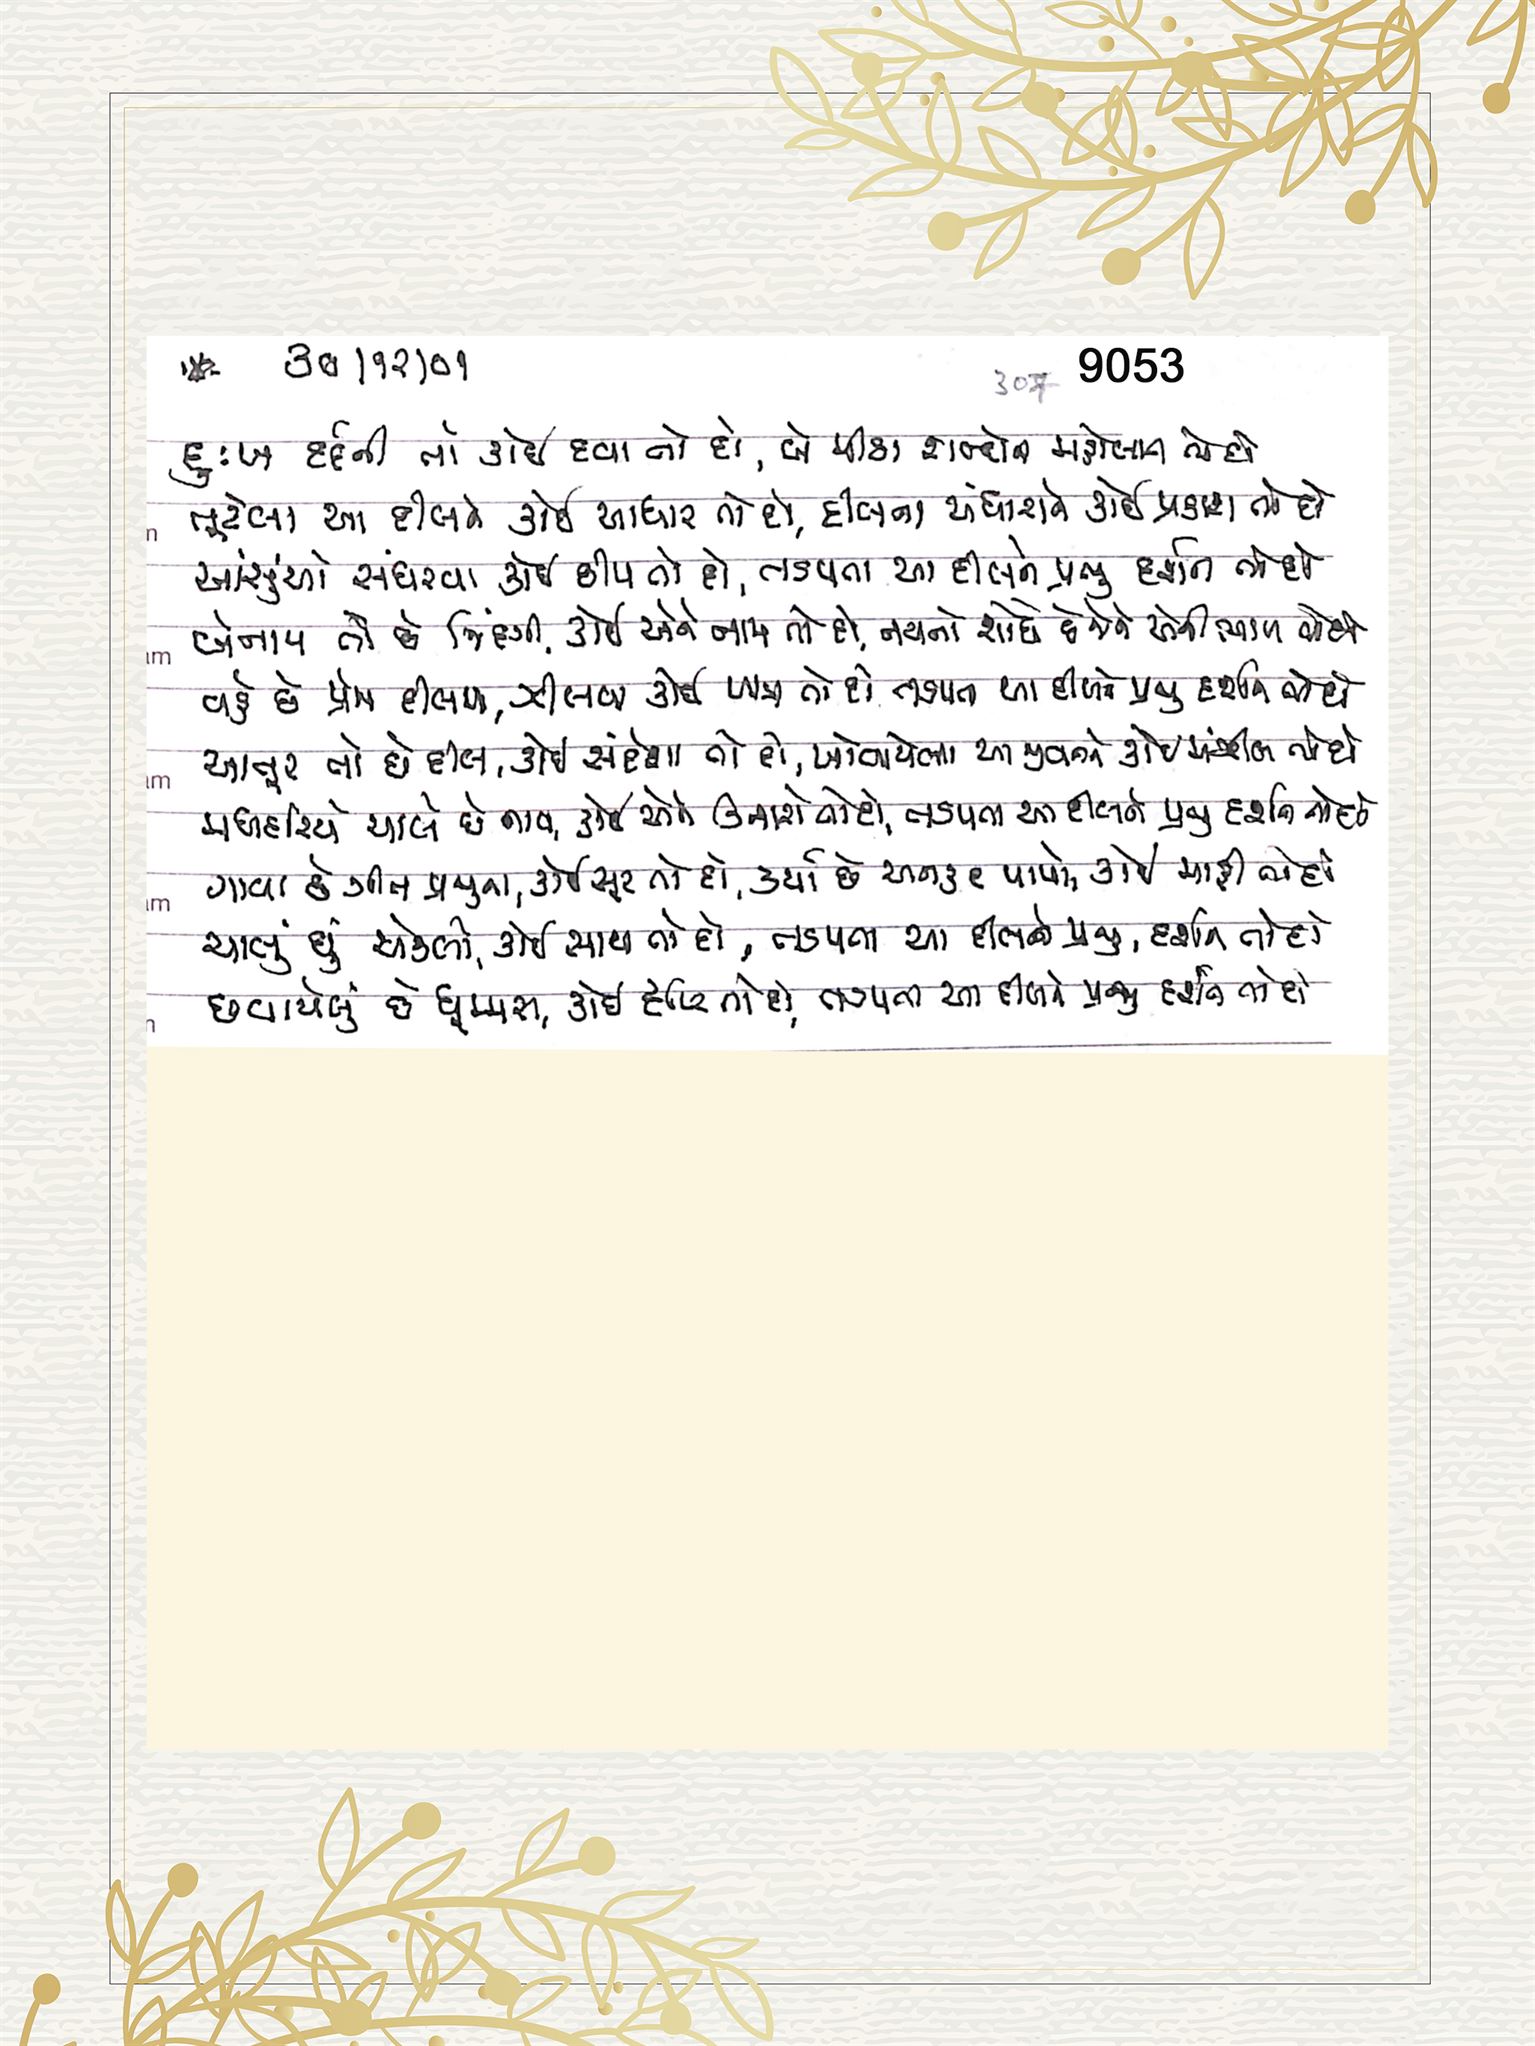 ૩૦/૧૨/૦૧
307 9053
દુઃખ દર્દની તો કોઈ દવા તો દો, બે મીઠા શબ્દોના મહેલાન તો દો
તૂટેલા આ દીલને કોઈ આધાર તો દો, દીલના અંધારાને કોઈ પ્રકાશ તો દો
આંસુંઓ સંઘરવા કોઈ છીપ તો દો, તડપતા આ દીલને પ્રભુ દર્શન તો દો
બેનામ તો છે જિંદગી, કોઈ એને નામ તો દો, નયનો શોધે છે જેને એની ભાળ તો દો
વહે છે પ્રેમ દીલમાં, ઝીલવા કોઈ પાત્ર તો દો તડપતા આ દીલને પ્રભુ દર્શન તો દો
આતૂર તો છે દીલ, કોઈ સંદેશા તો દો, ખોવાયેલા આ યુવકને કોઈ મંઝીલ તો દો
મધદરિયે ચાલે છે નાવ, કોઈ એને કિનારો તો દો, તડપતા આ દીલને પ્રભુ દર્શન તો દો
ગાવા છે ગીત પ્રભુના, કોઈ સૂર તો દો, કર્યા છે અનહદ પાપો, કોઈ માફી તો દો
ચાલું છું એકલો, કોઈ સાથ તો દો, તડપતા આ દીલને પ્રભુ, દર્શન તો દો
છવાયેલું છે ધૂમ્મસ, કોઈ દૃષ્ટિ તો દો, તડપતા આ દીલને પ્રભુ દર્શન તો દો